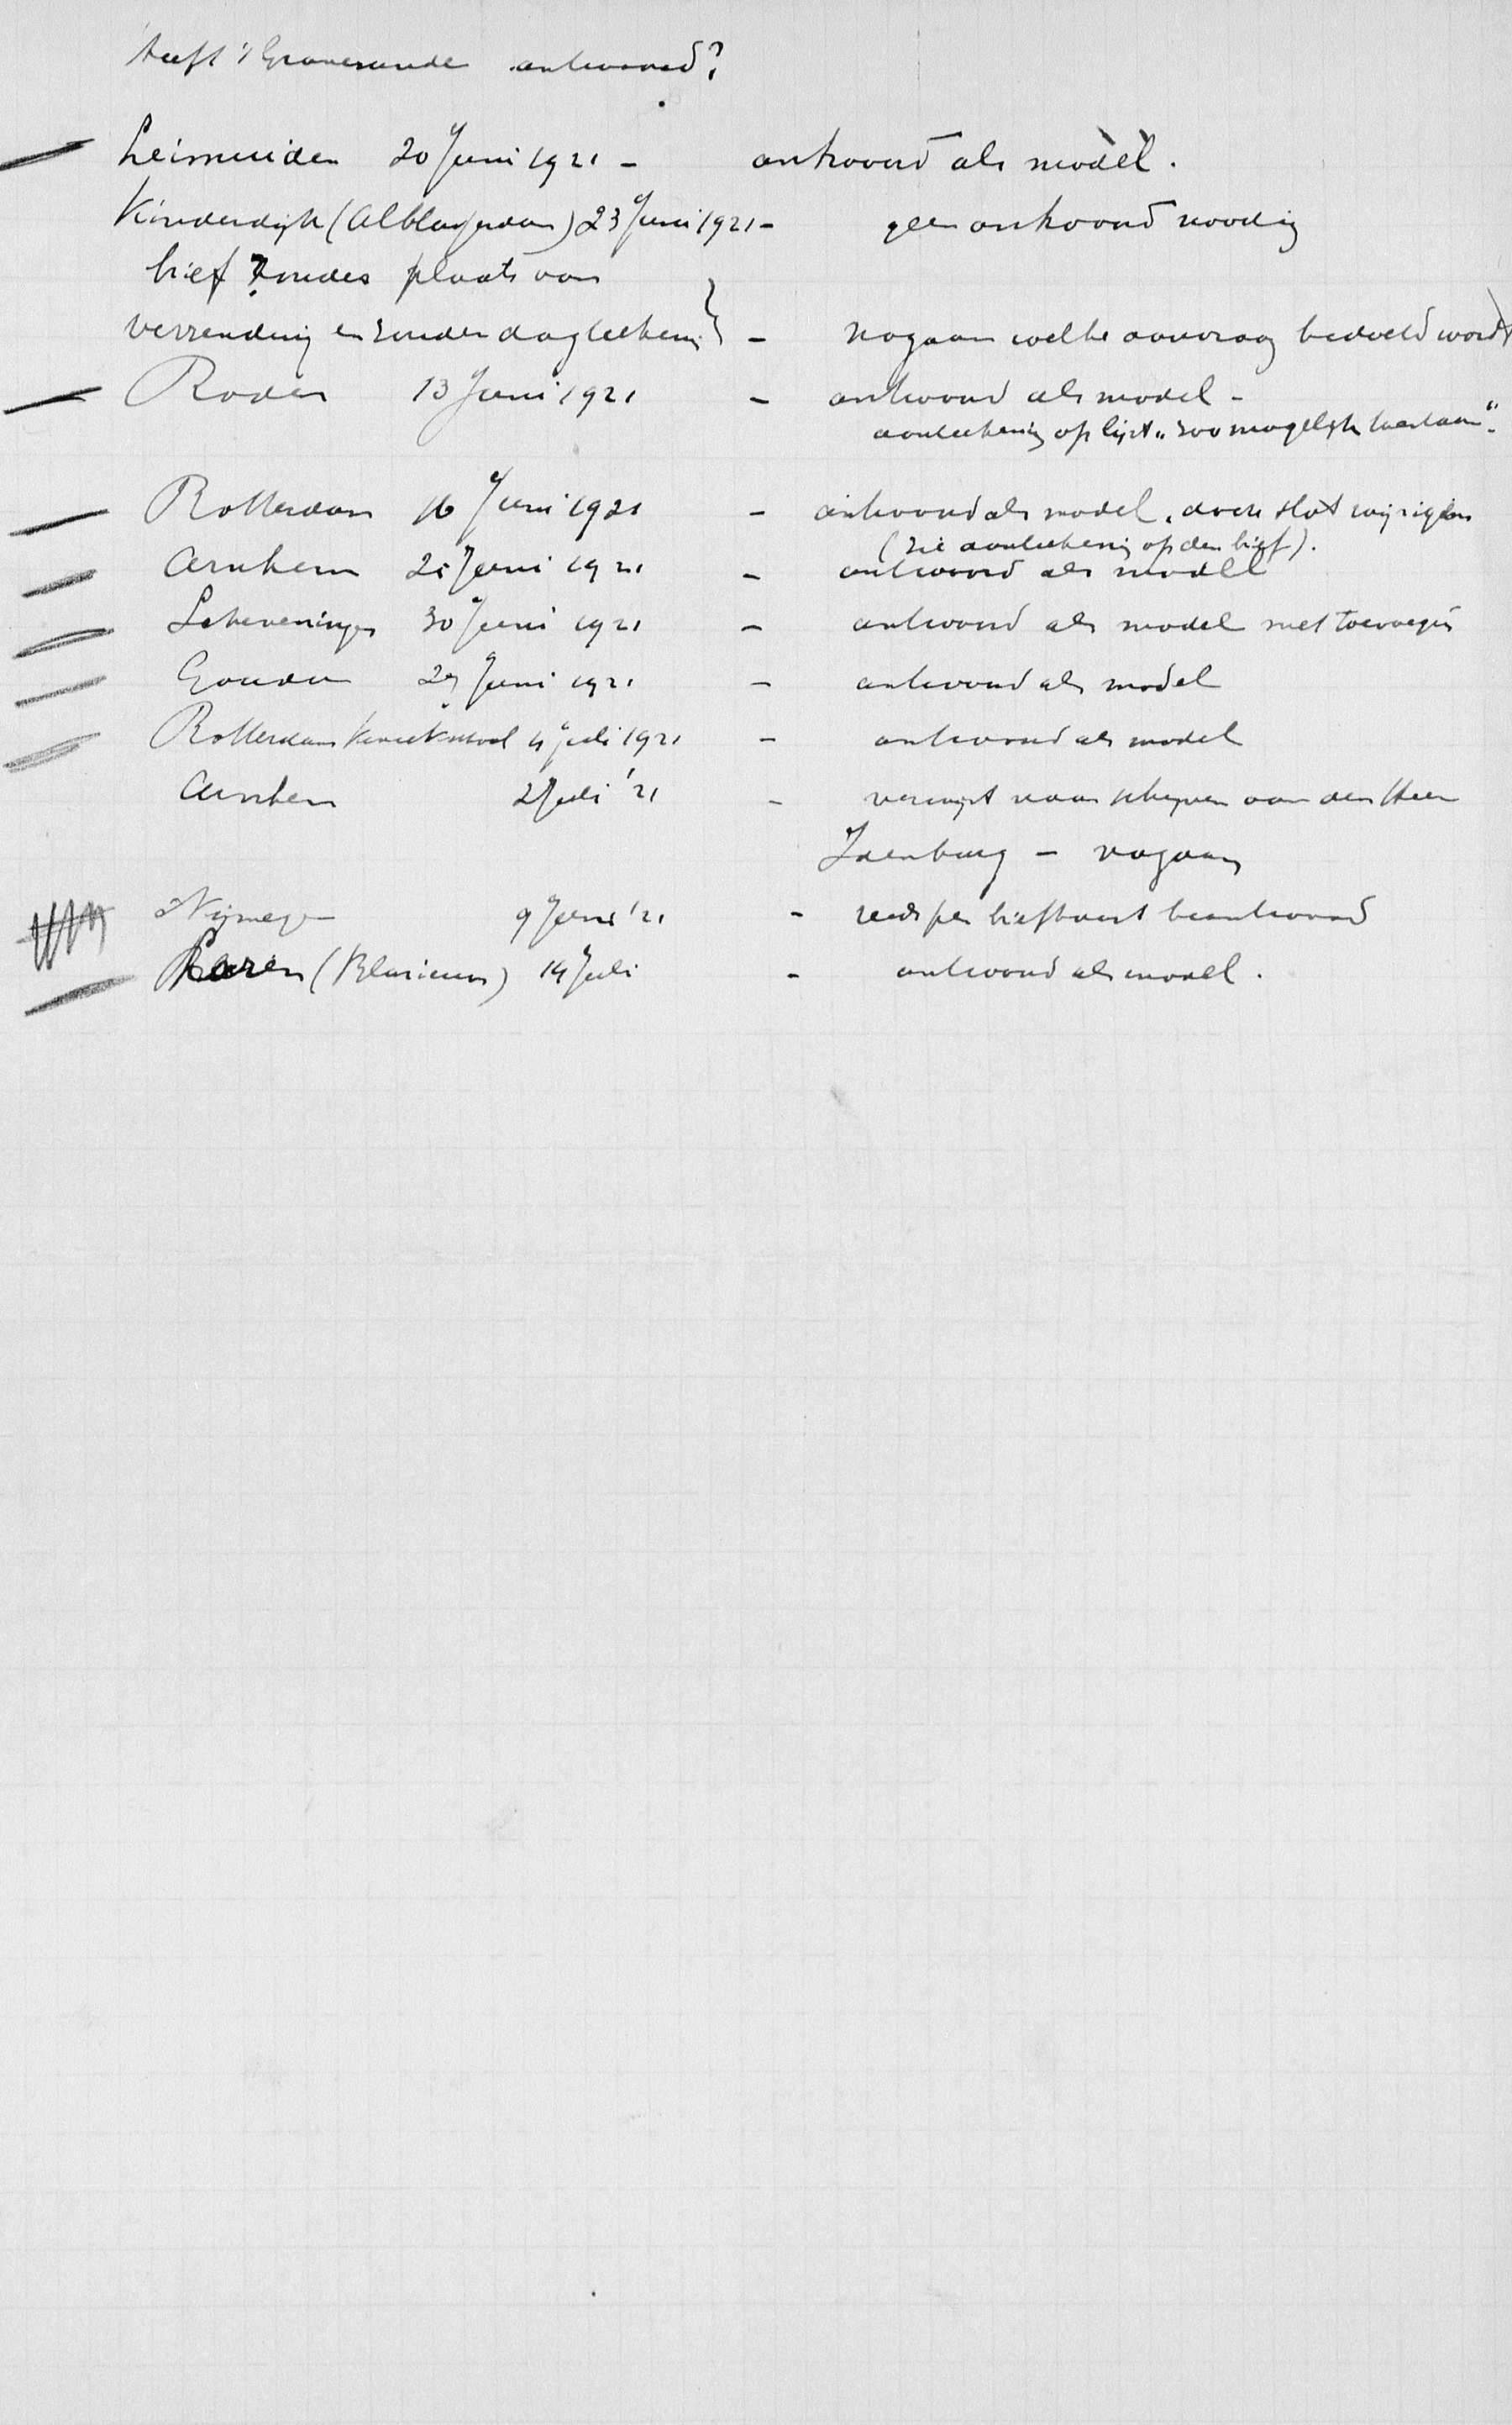 Heeft 's Gravesande antwoord?
Leimuiden 20 Juni 1921 - antwoord als model.
Kinderdijk (Alblasserdam) 23 Juni 1921 - geen antwoord noodig
brief zonder plaats van
verzending en zonder dagteekening } - nagaan welke aanvraag bedoeld wordt
Roden 13 Juni 1921 - antwoord als model -
aanteekening op lijst „zoo mogelijk toestaan".
Rotterdam 16 Juni 1921 - antwoord als model, doch slot wijzigen
(zie aanteekening op den brief).
Arnhem 21 Juni 1921 - antwoord als model
Scheveningen 30 Juni 1921 - antwoord als model met toevoeging
Gouda 29 Juni 1921 - antwoord als model
Rotterdam Kweekschool 4 Juli 1921 - antwoord als model
Arnhem 2 Juli '21 - verwijst naar schrijven van den Heer
Idenburg - nagaan
Nijmegen 9 Juni '21 - reeds per briefkaart beantwoord
Laren (Blaricum) 14 Juli - antwoord als model.